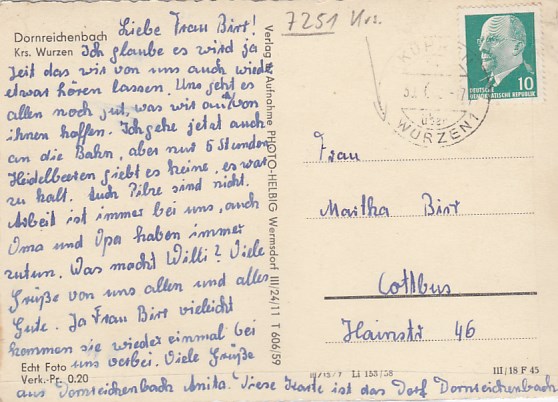 Dornreichenbach
Krs. Wurzen
7251 Krs.
Liebe Frau Birr!
Ich glaube es wird ja
Zeit das wir von uns auch wieder
etwas hören lassen. Uns geht es
allen noch gut, was wir auch von
ihnen hoffen. Ich gehe jetzt auch
an die Bahn, aber nur 5 Stunden
Heidelbeeren giebt es keine, es war
zu kalt. Auch Pilze sind nicht.
Arbeit ist immer bei uns, auch
Oma und Opa haben immer
zutun. Was macht Willi? Viele
Grüße von uns allen und alles
Gute. Ja Frau Birr vieleicht
kommen sie wieder einmal bei
uns vorbei. Viele Grüße
aus Dornreichenbach Anita. Diese Karte ist das Dorf Dornreichenbach
Echt Foto
Verk.-Pr. 0.20
Verlag u. Aufnahme PHOTO-HELBIG Wermsdorf III/24/11 T 606/59
DEUTSCHE
DEMOKRATISCHE REPUBLIK
10
über
WURZEN 1
Frau
Martha Birr
Cottbus
Hainstr 46
Li 153/58
III/18 F 45